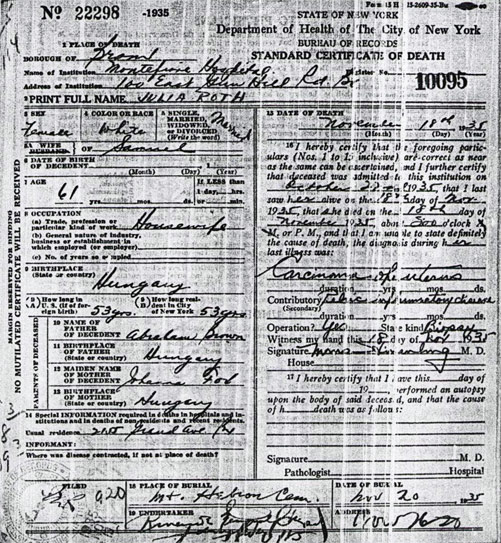 Nº 22298 -1935
Form 15 H
STATE OF NEW YORK
Department of Health of The City of New York
BUREAU OF RECORDS
STANDARD CERTIFICATE OF DEATH
Register No.
10095
1 PLACE OF DEATH
BOROUGH OF Bronx
Name of Institution Montefiore Hospital
Address of Institution 100 East Gun Hill Rd. Bx
2 PRINT FULL NAME JULIA ROTH
3 SEX
female
4 COLOR OR RACE
White
5 SINGLE, MARRIED, WIDOWED, or DIVORCED
(Write the word)
Married
5A WIFE
HUSBAND OF Samuel
6 DATE OF BIRTH OF DECEDENT
(Month) (Day) (Year)
7 AGE
61
yrs. mos. ds.
If LESS than
1 day, hrs.
or min.
8 OCCUPATION
(a) Trade, profession or particular kind of work Housewife
(b) General nature of industry, business or establishment in which employed (or employer)
(c) No. of years so employed
9 BIRTHPLACE
(State or country) Hungary
(A) How long in U. S. (if of foreign birth) 53 yrs.
(B) How long resident in City of New York 53 yrs.
PARENTS OF DECEASED
10 NAME OF FATHER OF DECEDENT Abraham Brown
11 BIRTHPLACE OF FATHER
(State or country) Hungary
12 MAIDEN NAME OF MOTHER OF DECEDENT
13 BIRTHPLACE OF MOTHER
(State or country) Hungary
14 Special INFORMATION required in deaths in hospitals and institutions and in deaths of non-residents and recent residents.
Usual residence Grand Ave
INFORMANT:
Where was disease contracted, if not at place of death?
MARGIN RESERVED FOR BINDING
NO MUTILATED CERTIFICATE WILL BE RECEIVED
15 DATE OF DEATH
November 18th 1935
(Month) (Day) (Year)
16 I hereby certify that the foregoing particulars (Nos. 1 to 14 inclusive) are correct as near
as the name can be ascertained, and I further certify
that deceased was admitted to this institution on
October 1935, that I last
saw her alive on the 18 day of Nov
1935, that she died on the 18th day of
November 1935, about o'clock
A. M., or P. M., and that I am unable to state definitely
the cause of death, the diagnosis during her
last illness was:
Carcinoma of uterus
duration yrs. mos. ds.
Contributory
(Secondary)
duration yrs. mos. ds.
Operation? Yes State kind Biopsy
Witness my hand this 18 day of Nov 1935
Signature M. D.
House
17 I hereby certify that I have this day of
19 performed an autopsy
upon the body of said deceased, and that the cause
of h death was as follows:
Signature M. D.
Pathologist Hospital
FILED
18 PLACE OF BURIAL
Mt. Hebron Cem.
DATE OF BURIAL
Nov 20 1935
19 UNDERTAKER
ADDRESS